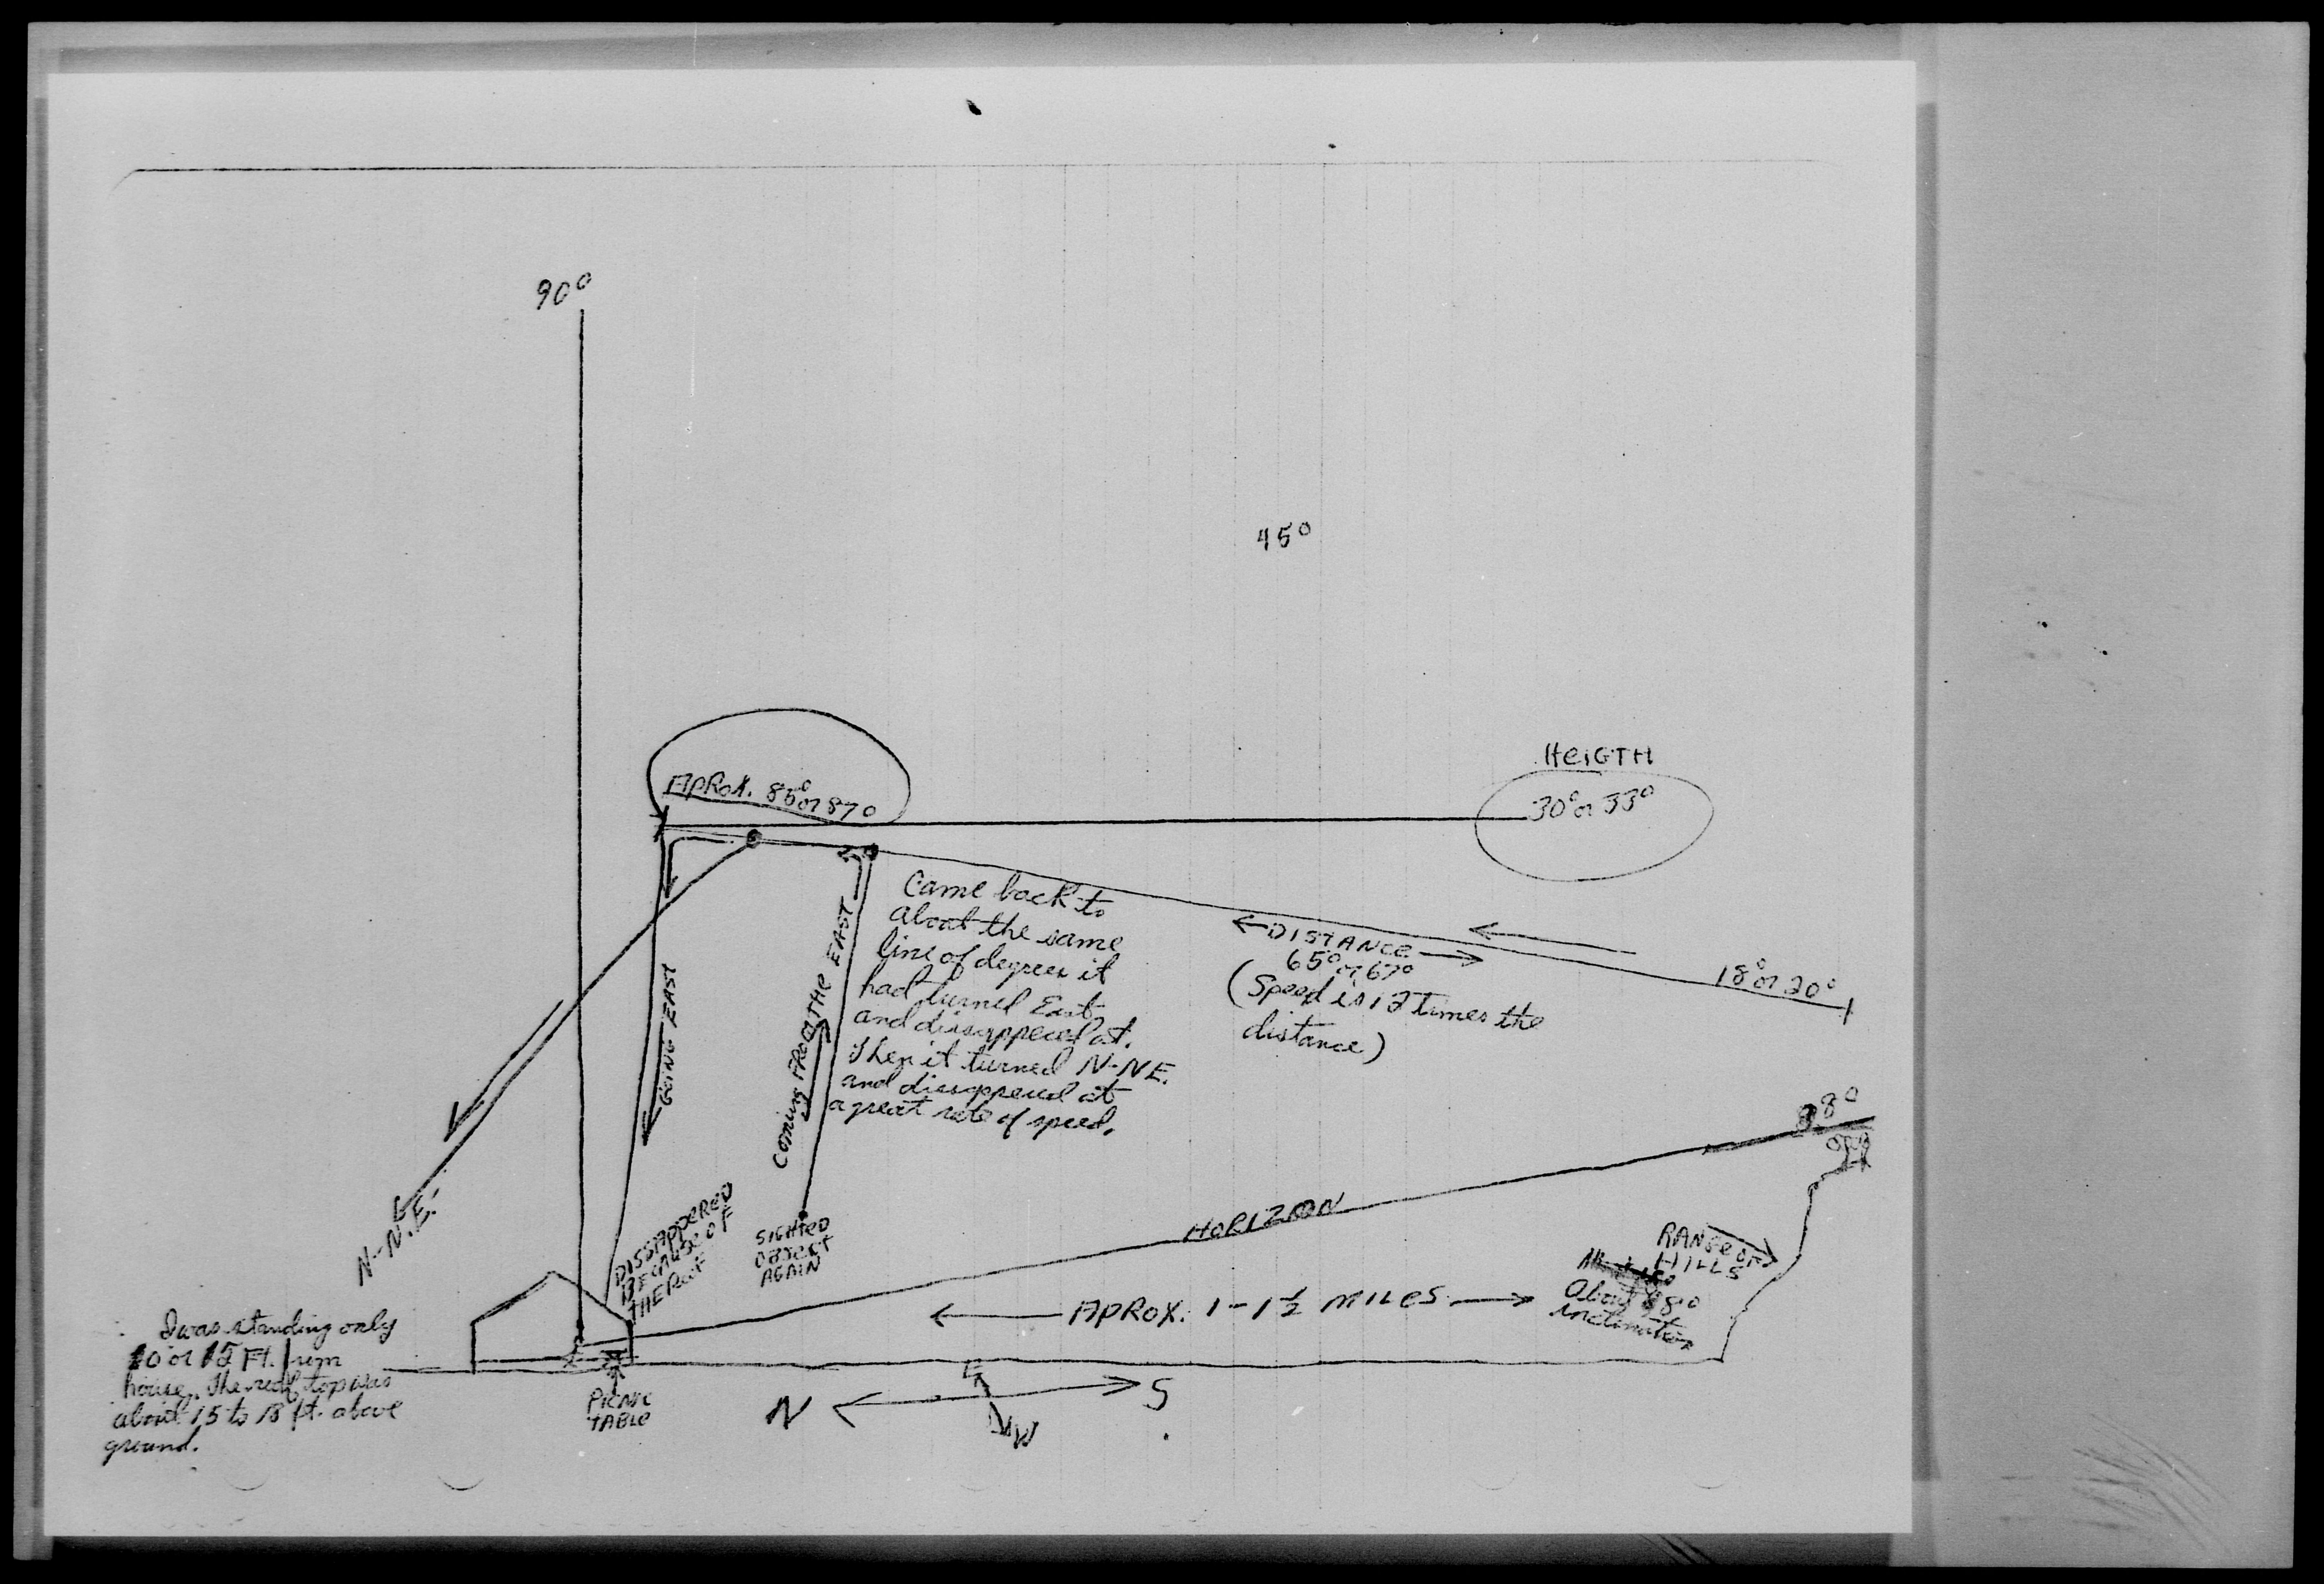 90°
45°
HEIGTH
30° or 33°
APROX. 85° or 87°
Came back to
about the same
line of degrees it
had turned East
and dissappeced at.
Then it turned N-NE.
and dissappeced at
a great rate of speed.
COMING FROM THE EAST
GOING EAST
←DISTANCE→
65° or 67°
(Speed is 12 times the
distance)
18° or 20°
88°
N-N.E.
DISSAPPERED
BECAUSE OF
THE ROOF
SIGHTED
OBJECT
AGAIN
HORIZON
RANGE OF
HILLS
About 88°
inclination
← APROX. 1-1½ MILES →
I was standing only
10 or 12 Ft. from
house. The roof top was
about 15 to 18 ft. above
ground.
PICNIC
TABLE
N
E
S
W